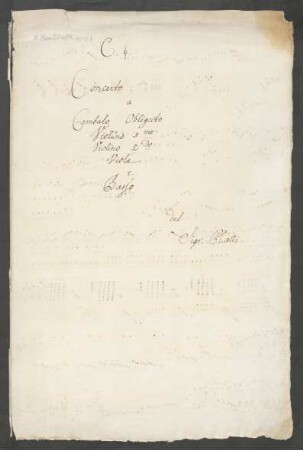 C. 4.
Concerto
a
Cembalo Obligato
Violino 1 mo
Violino 2 do
Viola
e
Basso
del
Sigr.